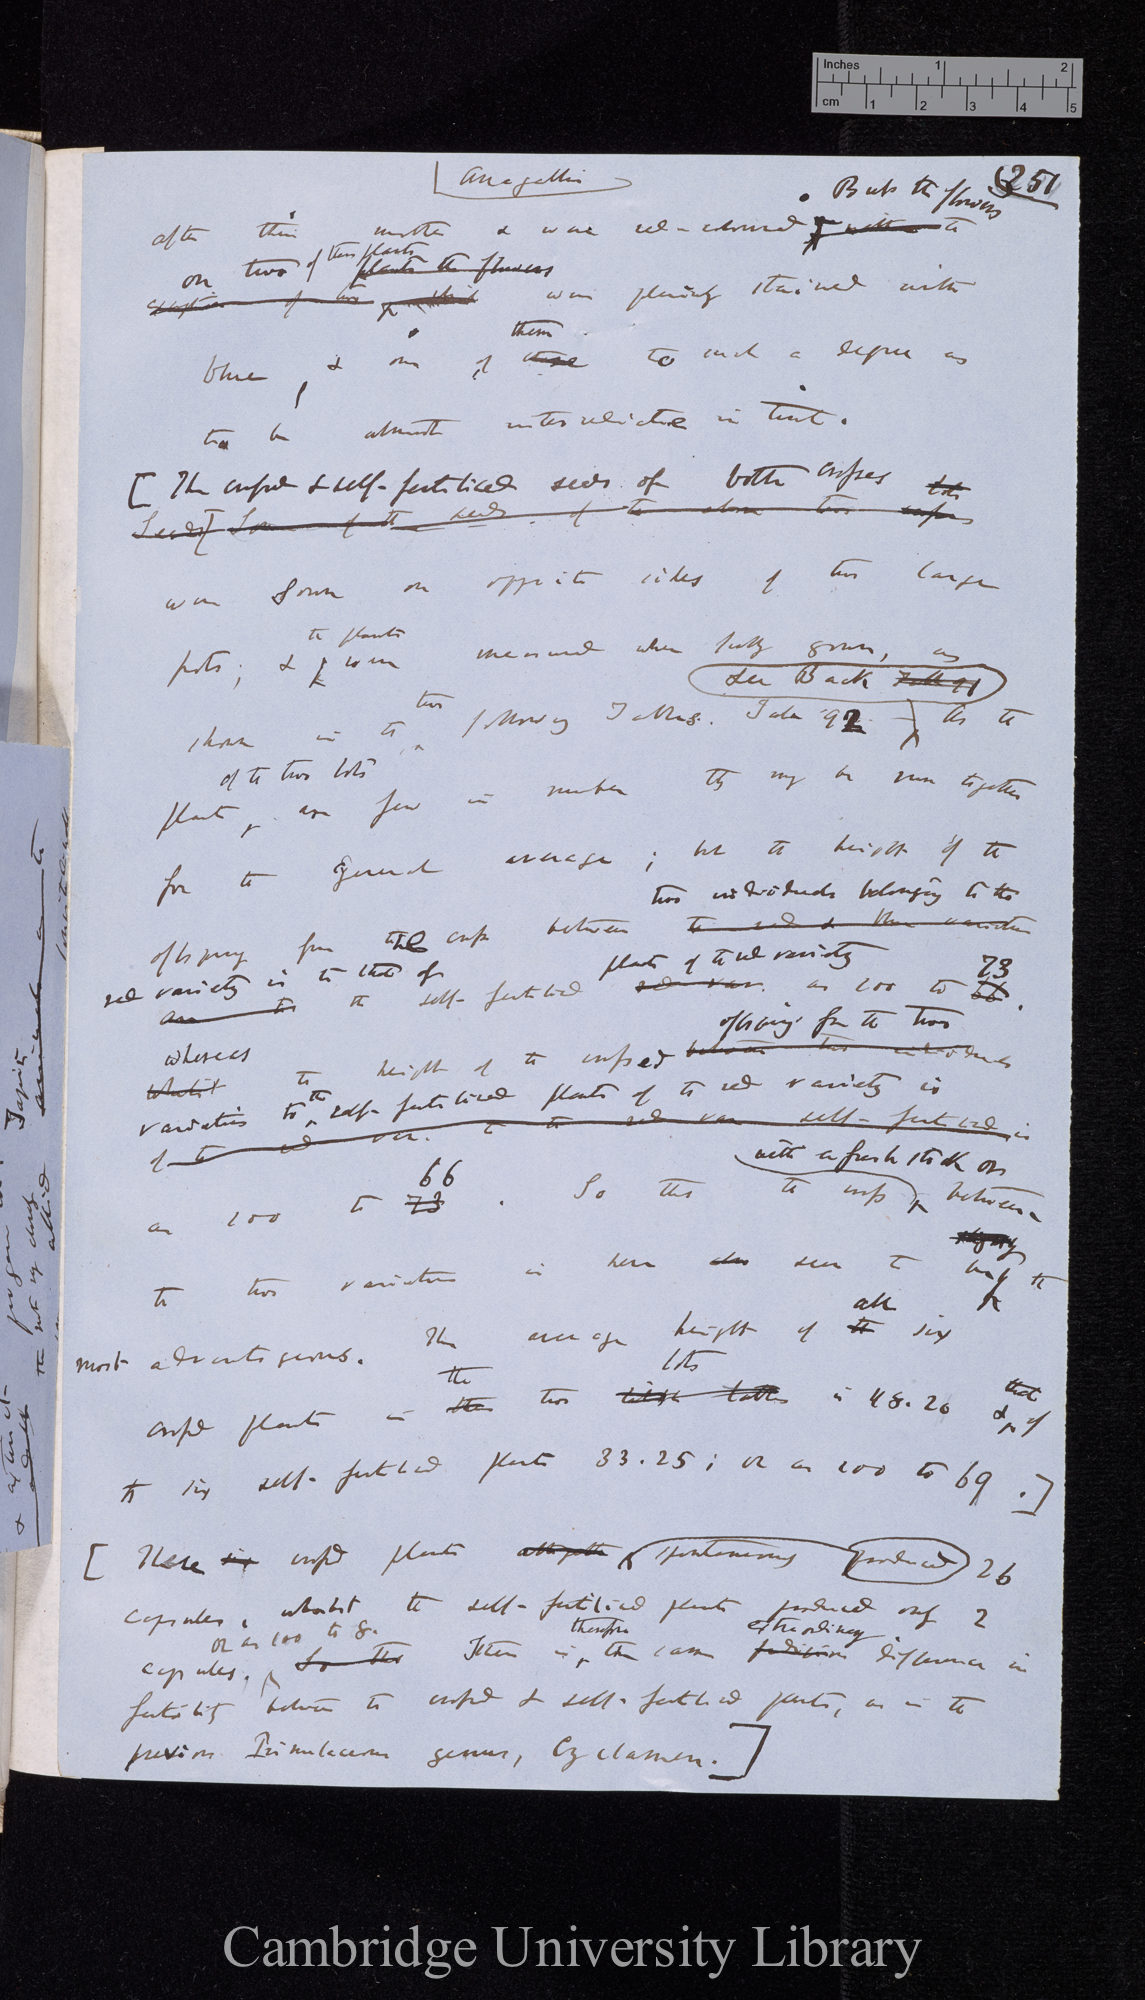 Inches 1 2
cm 1 2 3 4 5
Anagallis
251
But the flowers
after their mother & were red-coloured with the
on two of these plants plants the flowers
exception of two which were plainly stained with
blue, & one of them these to such a degree as
to be almost intermediate in tint.
[The crossed & self-fertilised seeds of both crosses
Seeds] Some of the seeds of the above two crosses
were sown on opposite sides of two large
the plants
pots; & were measured when fully grown, as
see Back Table 91
two
shown in the following Tables. Table 92 As the
of the two lots
plants are few in number they may be run together
for the general average; but the height of the
two individuals belonging to the
offspring from the cross between the red & blue varieties
red variety is to that of plants of the red variety 73
are to the self-fertilised red var. as 100 to 66.
offspring from the two
whereas
whilst the height of the crossed between two individuals
varieties to the self-fertilised plants of the red variety is
of the red var. to the red var. self-fertilised is
with a fresh stock or
66
as 100 to 73. So that the cross between
the two varieties is here seen to be the
all
most advantageous. The average height of the six
the lots
crossed plants in these two tables is 48.20 & that of
the six self-fertilised plants 33.25; or as 100 to 69.]
[These six crossed plants altogether spontaneously produced 26
capsules, whilst the self-fertilised plants produced only 2
or as 100 to 8. therefore extraordinary
capsules. So that There is the same difference in
fertility between the crossed & self-fertilised plants, as in the
previous Primulaceous genus, Cyclamen.]
Cambridge University Library